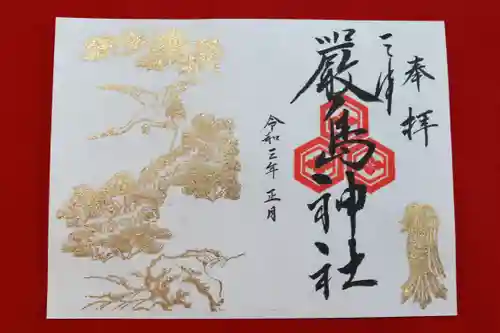 奉拝
三津
嚴島神社
令和三年正月